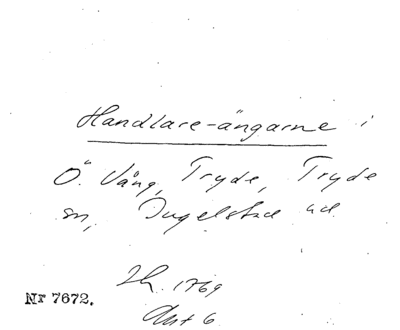 Handlare-ängarne i
Ö. Vång, Tryde, Tryde
sn, Ingelstad hd.
Lh. 1769
Akt 6
Nr 7672.